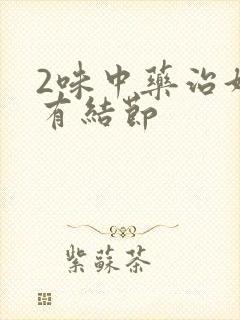 2味中藥治
有結節
紫蘇茶